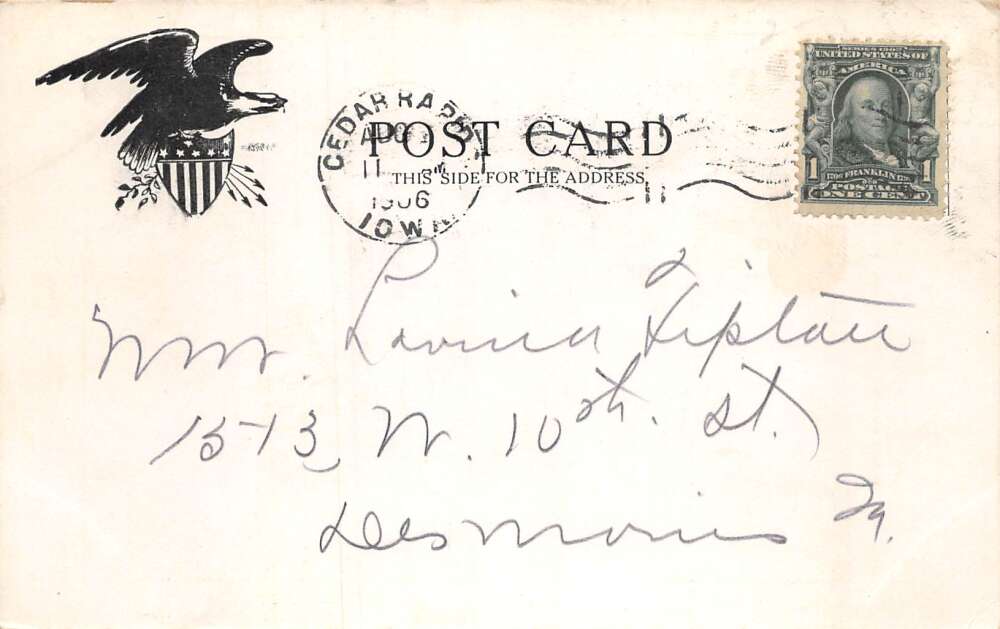 CEDAR RAPI
11
1906
IOWA
POST CARD
THIS SIDE FOR THE ADDRESS
11
11
SERIES 1902
UNITED STATES OF
AMERICA
1 FRANKLIN 1
POSTAGE
ONE CENT
Lavina Tipton
1513 W. 10th. St.
Des Moines Ia.